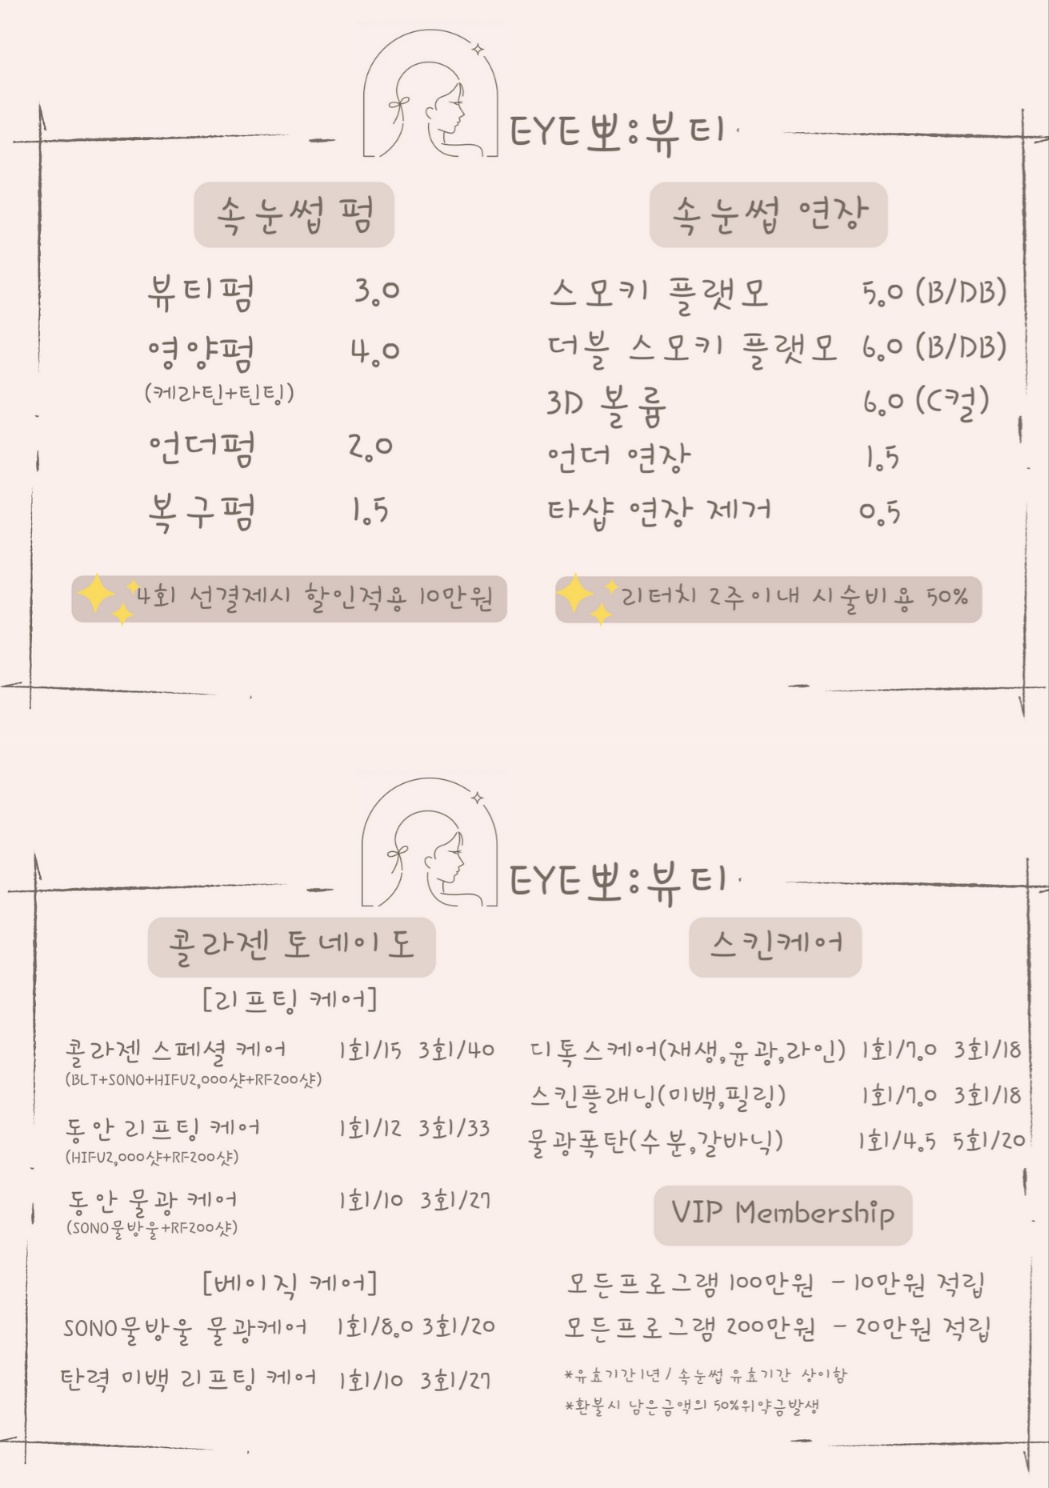 EYE뽀:뷰티
속눈썹 펌
뷰티펌 3.0
영양펌 4.0
(케라틴+틴팅)
언더펌 2.0
복구펌 1.5
4회 선결제시 할인적용 10만원
속눈썹 연장
스모키 플랫모 5.0 (B/DB)
더블 스모키 플랫모 6.0 (B/DB)
3D 볼륨 6.0 (C컬)
언더 연장 1.5
타샵 연장 제거 0.5
리터치 2주이내 시술비용 50%
EYE뽀:뷰티
콜라젠 토네이도
[리프팅 케어]
콜라젠 스페셜 케어 1회/15 3회/40
(BLT+SONO+HIFU2,000샷+RF200샷)
동안 리프팅 케어 1회/12 3회/33
(HIFU2,000샷+RF200샷)
동안 물광 케어 1회/10 3회/27
(SONO물방울+RF200샷)
[베이직 케어]
SONO물방울 물광케어 1회/8.0 3회/20
탄력 미백 리프팅 케어 1회/10 3회/27
스킨케어
디톡스케어(재생,윤광,라인) 1회/7.0 3회/18
스킨플래닝(미백,필링) 1회/7.0 3회/18
물광폭탄(수분,갈바닉) 1회/4.5 5회/20
VIP Membership
모든프로그램 100만원 - 10만원 적립
모든프로그램 200만원 - 20만원 적립
*유효기간1년 / 속눈썹 유효기간 상이함
*환불시 남은금액의 50%위약금발생